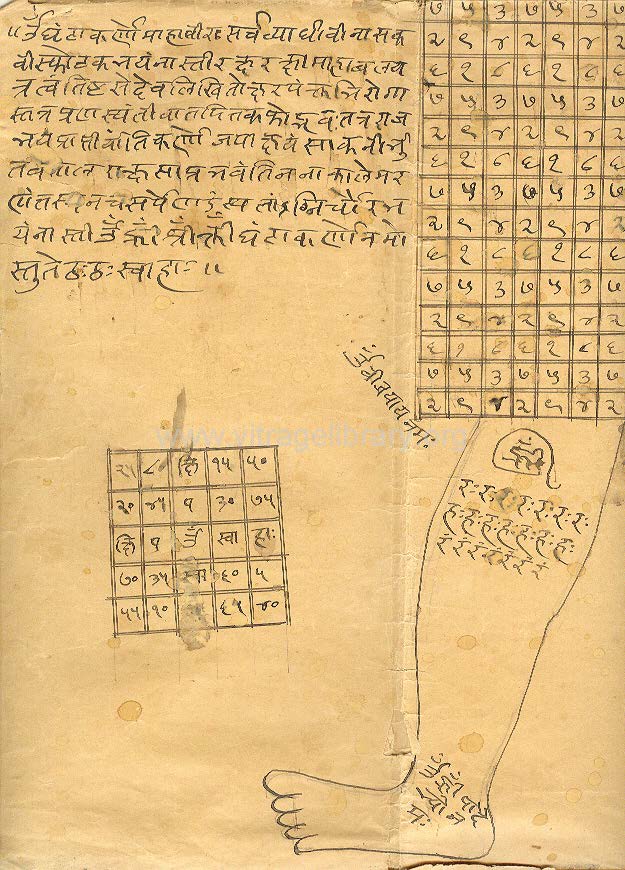 ॥ ॐ घंटाकर्णो माहावीरः सर्वव्याधीवीनासक
वीस्फोटकभयंनास्तीरक्षरक्षीमाहाबलयं
त्रत्वंतिष्टसेदेवालिखितोक्षरपंक्तानिरोगा
स्तत्रप्रणस्यंतीवातपितकफोद्भवंतत्रराज
भयं कर्णेजपाक्षयंसाकनीभु
तवेतालराक्षसाप्रभवंतिनानाकालेमर
णंतस्यनचसर्पेण अग्निचौरभ
येनास्तीॐह्रींश्रींक्लींघंटाकर्णोनमो
स्तुतेठःठःस्वाहाः॥
७ ५ ३ ७ ५ ३ ७
२ ९ ४ २ ९ ४ २
६ १ ८ ६ १ ८ ६
७ ५ ३ ७ ५ ३ ७
२ ९ ४ २ ९ ४ २
६ १ ८ ६ १ ८ ६
७ ५ ३ ७ ५ ३ ७
२ ९ ४ २ ९ ४ २
६ १ ८ ६ १ ८ ६
७ ५ ३ ७ ५ ३ ७
२ ९ ४ २ ९ ४ २
६ १ ८ ६ १ ८ ६
७ ५ ३ ७ ५ ३ ७
२ ९ ४ २ ९ ४ २
ॐवीजयायनमः
www.vitragelibrary.org
२५ ८ क्षि १५ ५०
२० ४५ प ३० ७५
क्षि प ॐ स्वा हाः
७० ३५ स्वा ६० ५
५५ १० ६५ ४०
रः रः रः रः रः रः रः
हः हः हः हः हः हः हः